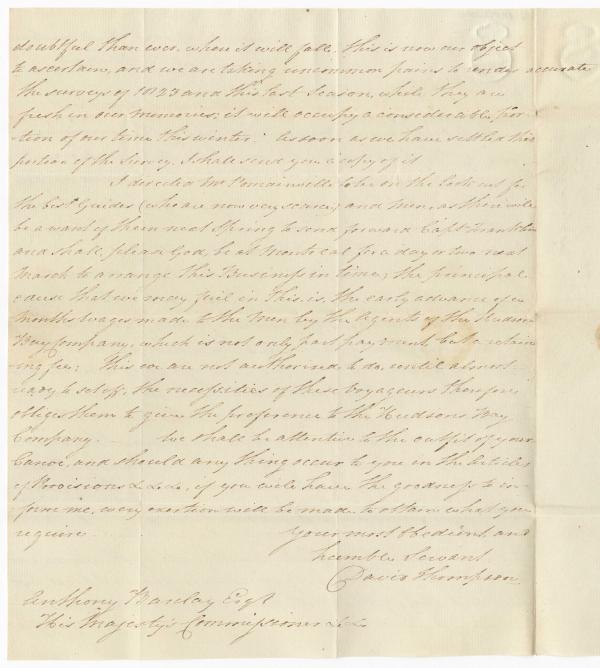 doubtful than ever, where it will fall, this is now our object
to ascertain, and we are taking uncommon pains to render accurate
the surveys of 1823 and this last Season, while they are
fresh in our memories; it will occupy a considerable por-
tion of our time this winter. As soon as we have settled this
portion of the Survey, I shall send you a copy of it
I directed Mr Pomainville to be on the look out for
the best Guides (who are now very scarce) and Men, as there will
be a want of them next Spring to send forward Captn Franklin
and shall, please God, be at Montreal for a day or two next
March to arrange this Business in time; the principal
cause that we may fail in this is, the early advance of
months wages made to the Men by the Agents of the Hudson
Bay Company, which is not only part payment, but a retain-
ing fee: This we are not authorized to do, until almost
ready to set off, the necessities of these Voyageurs therefore
obliges them to give the preference to the Hudsons Bay
Company. We shall be attentive to the outfit of your
Canoe, and should any thing occur to you in the Articles
of Provisions &c &c, if you will have the goodness to in-
form me, every exertion will be made to obtain what you
require.
Your most Obedient and
humble Servant
David Thompson
Anthony Barclay Esqr
His Majesty's Commissioner &c